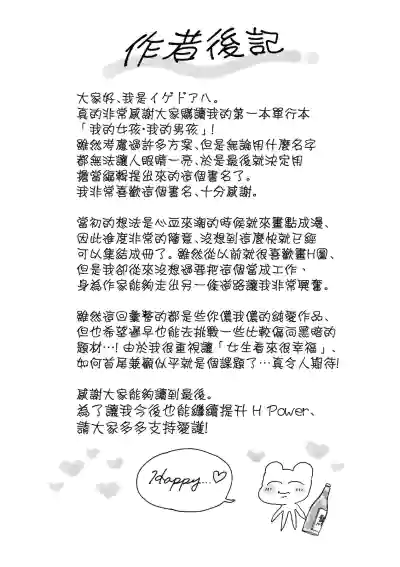 作者後記
大家好、我是イゲドアハ。
真的非常感謝大家購讀我的第一本單行本
「我的女孩‧我的男孩」!
雖然考慮過許多方案、但是無論用什麼名字
都無法讓人眼睛一亮、於是最後就決定用
責當編輯提出來的這個書名了。
我非常喜歡這個書名、十分感謝。
當初的想法是心血來潮的時候就來畫點成漫、
因此進度非常的隨意、沒想到這麼快就已經
可以集結成冊了。雖然從以前就很喜歡畫H圖、
但是我卻從來沒想過要把這個當成工作、
身為作家能夠走出另一條道路讓我非常興奮。
雖然這回彙整的都是些你儂我儂的純愛作品、
但也希望學也能去挑戰一些比較傷同黑暗的
題材…!由於我很重視讓「女生看來很幸福」、
如何首尾兼顧似乎就是個課題了…真令人期待!
感謝大家能夠讀到最後。
為了讓我今後也能繼續提升 H Power、
請大家多多支持愛護!
Happy...♡